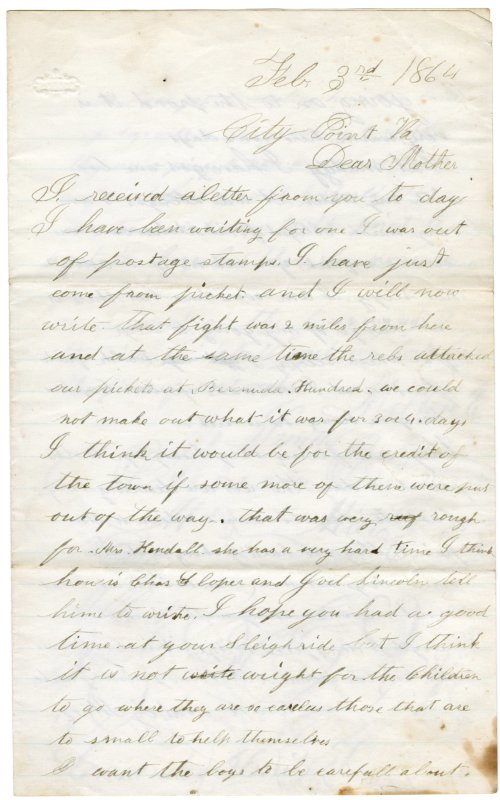 Feb. 3rd 1864
City Point Va
Dear Mother
I received a letter from you to day
I have been waiting for one I was out
of postage stamps. I have just
come from picket. and I will now
write. that fight was 2 miles from here
and at the same time the rebs attacked
our pickets at Bermuda. Hundred. we could
not make out what it was for 3 or 4. days
I think it would be for the credit of
the town if some more of them were put
out of the way. that was very rough
for. Mrs. Kendall. she has a very hard time I think
how is Chas Sloper and Joel Lincoln tell
hime to write. I hope you had a good
time at your Sleighride but I think
it is not write wright for the Children
to go where they are so careless those that are
to small to help themselves
I want the boys to be carefull about.